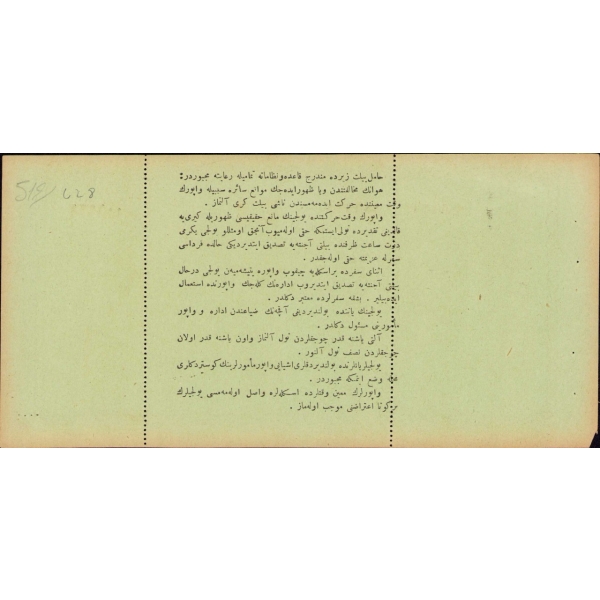 519/ 628
حامل بیلت زیرده مندرج قاعده و نظاماته تمامیله رعایته مجبوردر:
هوانك مخالفتندن ویا ظهور ایده جك موانع سائره سببیله واپورك
وقت معیننده حركت ایده مه مسندن ناشی بیلت كری آلنماز .
واپورك وقت حركتنده یولجینك مانع حقیقیسی ظهوریله كیرییه
قالدیغی تقدیرده نولی ایستمكه حقی اولمیوب آنجق اومثللو یولجی یكرمی
درت ساعت ظرفنده بیلتی آجنته یه تصدیق ایتدیردیكی حالده فرداسی
سفرله عزیمته حقی اوله جقدر .
اثنای سفرده براسكله یه چیقوب واپوره یتیشه میه ن یولجی درحال
بیلتی آجنته یه تصدیق ایتدیروب اداره نك كله جك واپورنده استعمال
ایده بیلیر . بشقه سفرلرده معتبر دكلدر .
یولجینك یاننده بولندیردیغی آقچه نك ضیاعندن اداره و واپور
مأمورینی مسئول دكلدر .
آلتی یاشنه قدر چوجقلردن نول آلنماز واون یاشنه قدر اولان
چوجقلردن نصف نول آلنور .
یولجیلر یانلرنده بولندیردقلری اشیایی واپور مأمورلرینك كوستردكلری
محله وضع ایتمكه مجبوردر .
واپورلرك معین وقتلرده اسكله لره واصل اوله مه مسی یولجیلرك
بركونا اعتراضنی موجب اوله ماز .